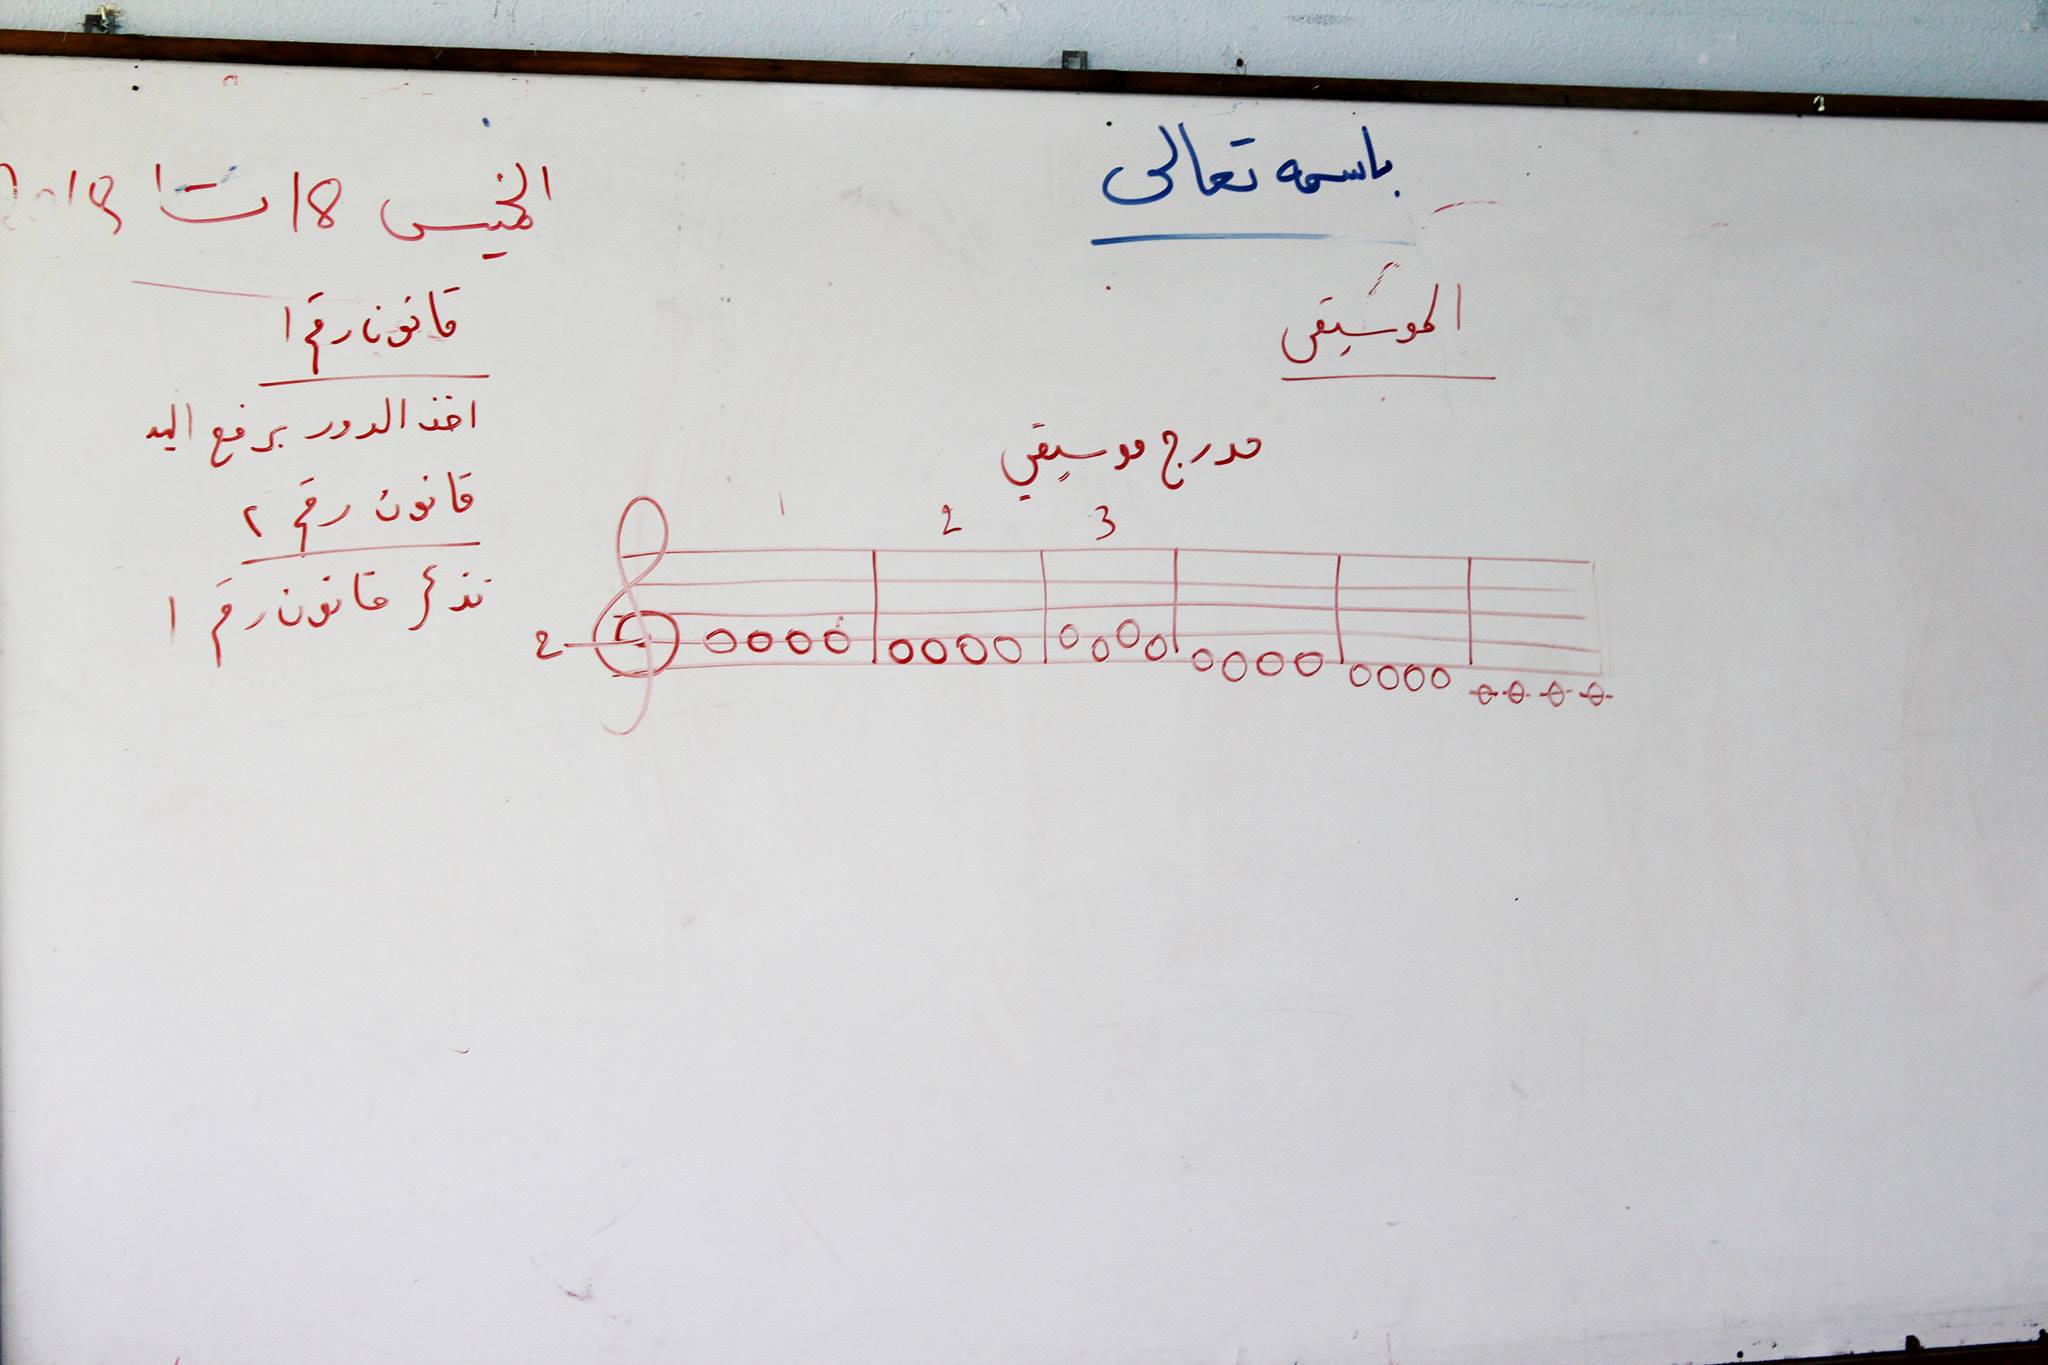 باسمه تعالى
الخميس 18 ت1 2018
الموسيقى
قانون رقم 1
اخذ الدور برفع اليد
قانون رقم ٢
تذكر قانون رقم 1
مدرج موسيقي
1 2 3
2